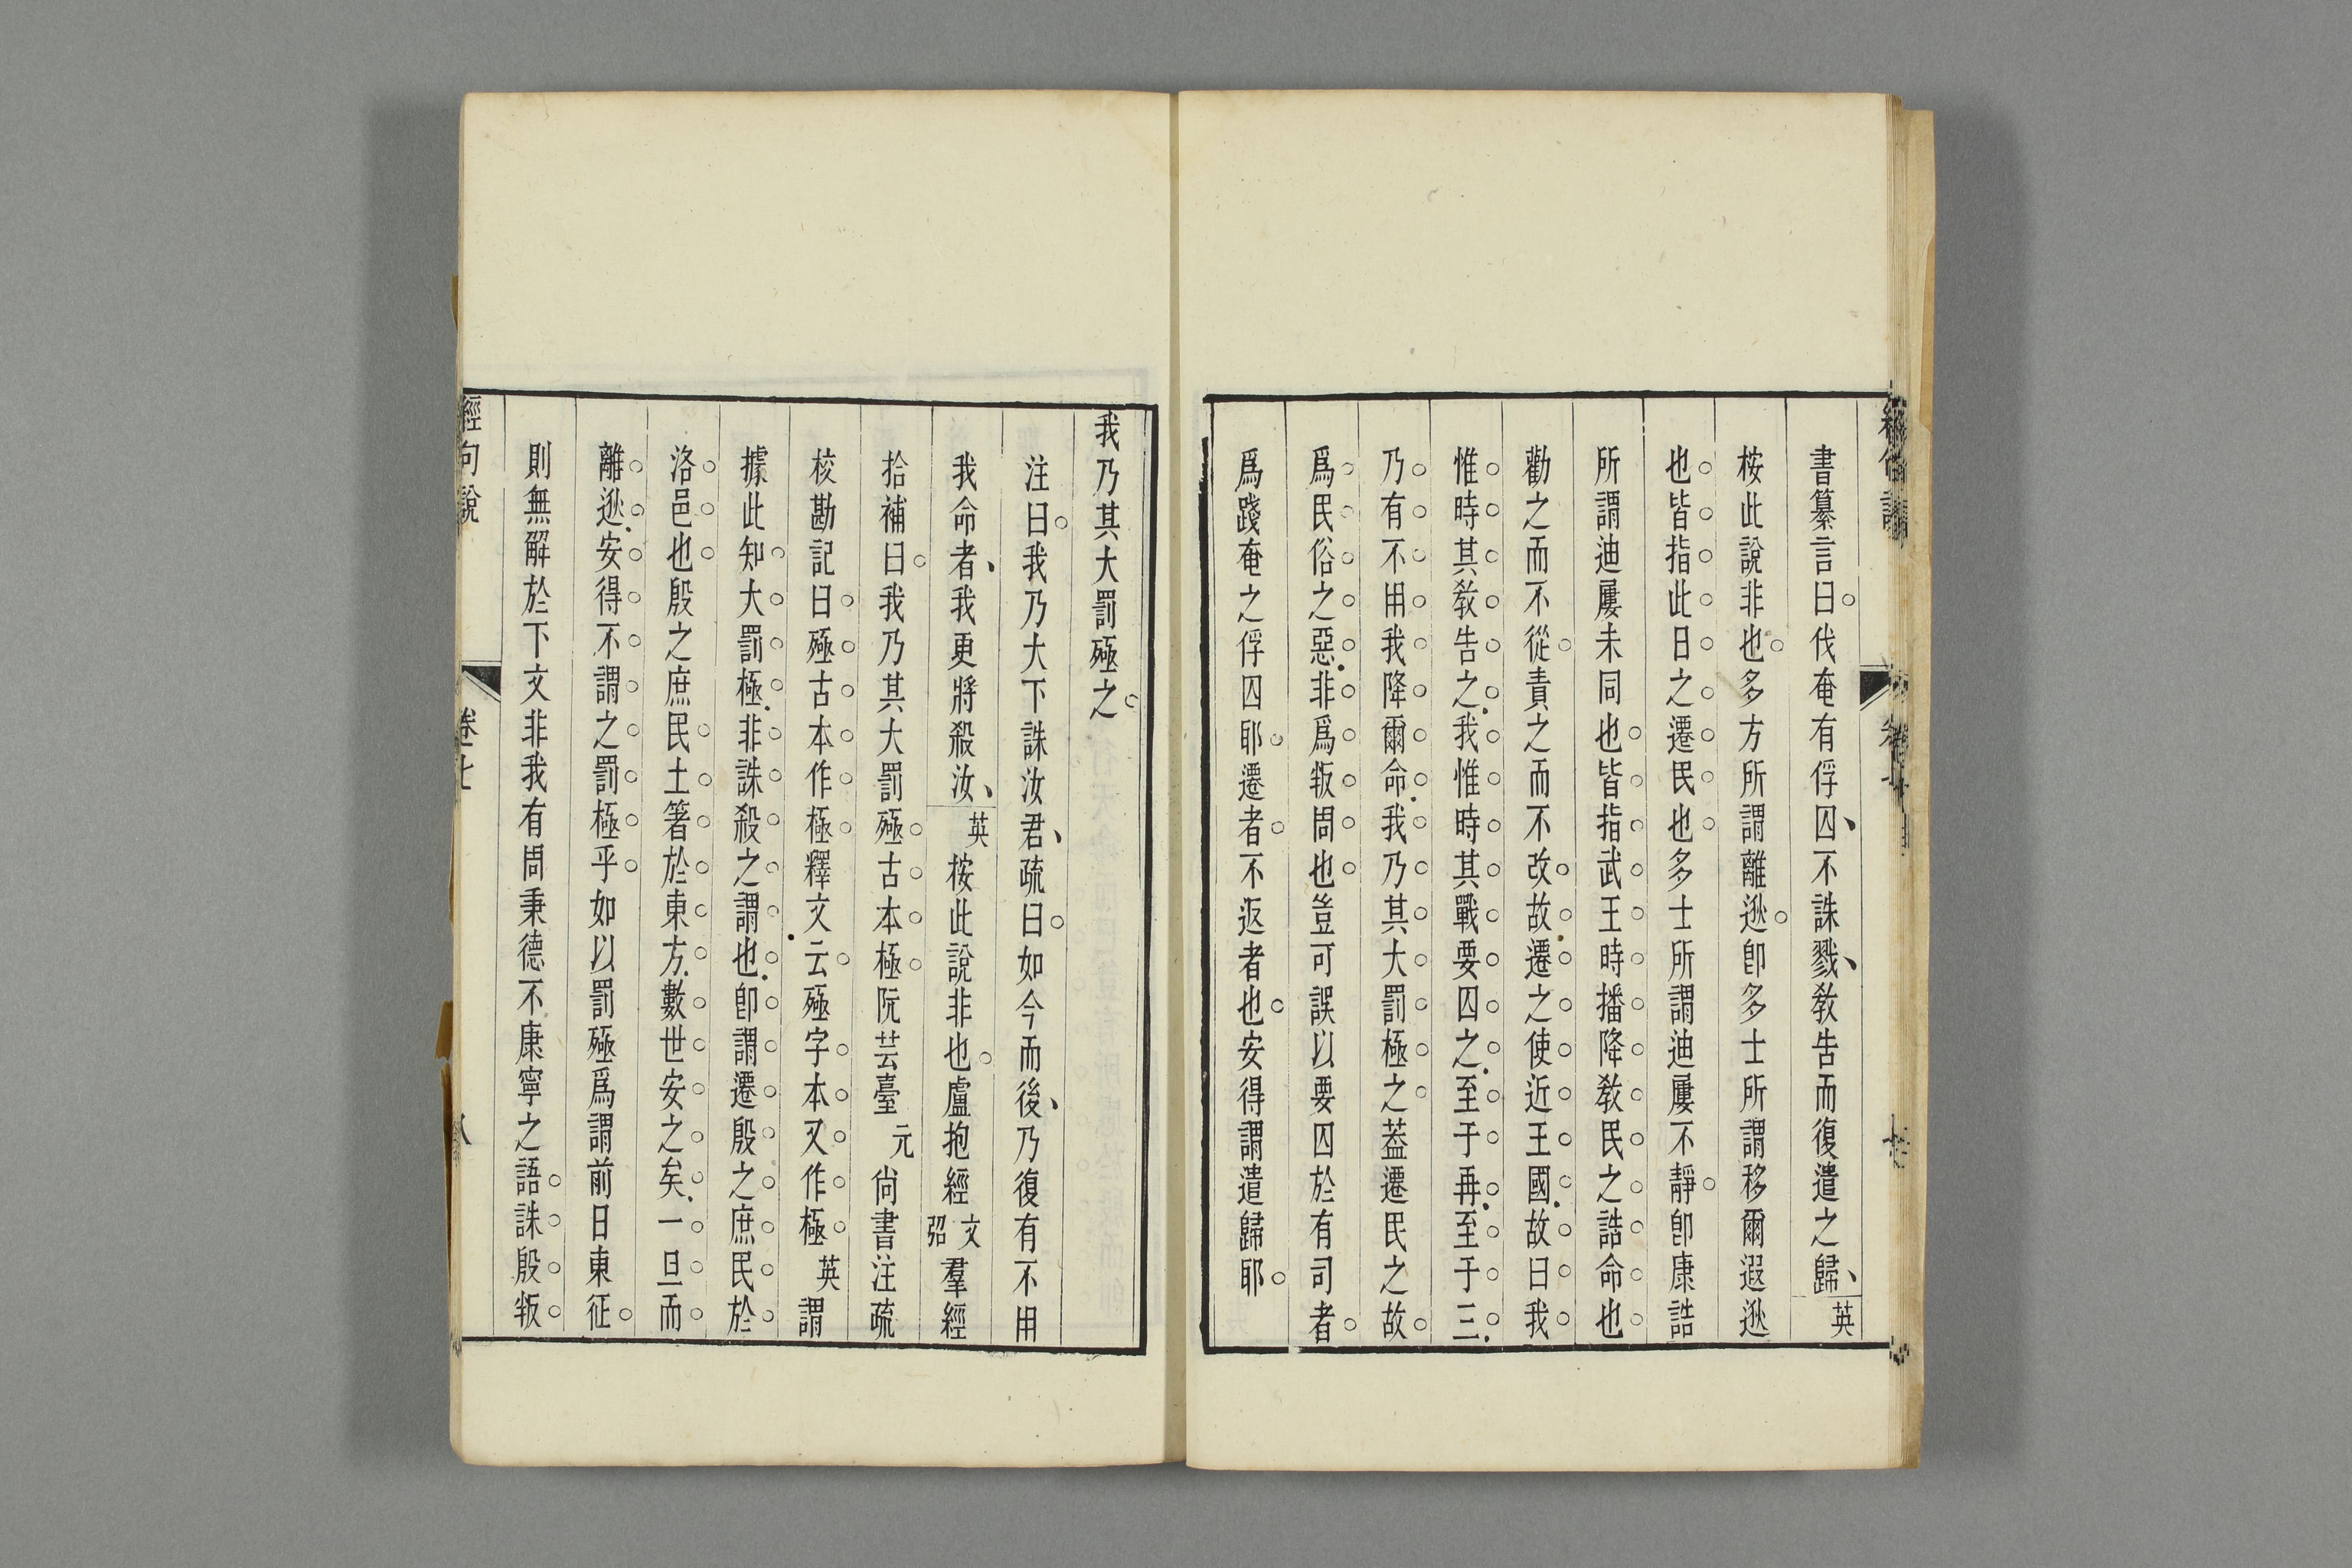 書纂言曰伐奄有俘囚不誅戮敎告而復遣之歸英
桉此說非也多方所謂離逖卽多士所謂移爾遐逖
也皆指此日之遷民也多士所謂迪屢不靜卽康誥
所謂迪屢未同也皆指武王時播降敎民之誥命也
勸之而不從責之而不改故遷之使近王國故曰我
惟時其敎告之我惟時其戰要囚之至于再至于三
乃有不用我降爾命我乃其大罰極之葢遷民之故
爲民俗之惡非爲叛周也豈可誤以要囚於有司者
爲踐奄之俘囚耶遷者不返者也安得謂遣歸耶
我乃其大罰殛之
注曰我乃大下誅汝君疏曰如今而後乃復有不用
我命者我更將殺汝英桉此說非也盧抱經文弨羣經
拾補曰我乃其大罰殛古本極阮芸臺元尙書注疏
校勘記曰殛古本作極釋文云殛字本又作極英謂
據此知大罰極非誅殺之謂也卽謂遷殷之庶民於
洛邑也殷之庶民土箸於東方數世安之矣一旦而
離逖安得不謂之罰極乎如以罰殛爲謂前日東征
則無解於下文非我有周秉德不康寧之語誅殷叛
經句說 卷七 八